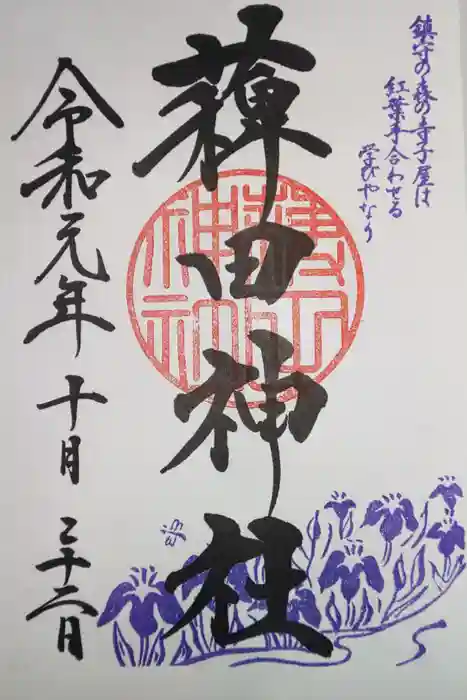 鎮守の森の寺子屋は
紅葉手合わせる
学びやなり
薭田神社
令和元年十月二十二日